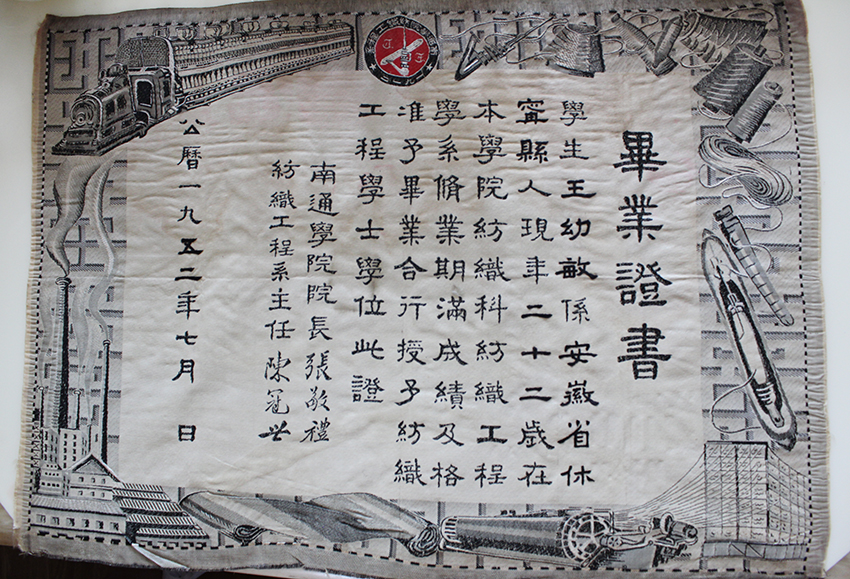 畢業證書
學生王幼敏係安徽省休
寧縣人現年二十二歲在
本學院紡織科紡織工程
學系脩業期滿成績及格
准予畢業合行授予紡織
工程學士學位此證
南通學院院長張敬禮
紡織工程系主任陳冠世
公曆一九五二年七月 日